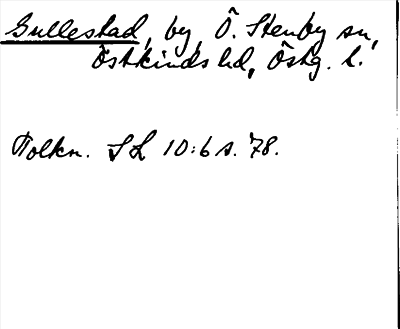 Gullestad, by, Ö. Stenby sn,
Östkinds hd, Östg. l.
Tolkn. SL 10:6 s. 78.